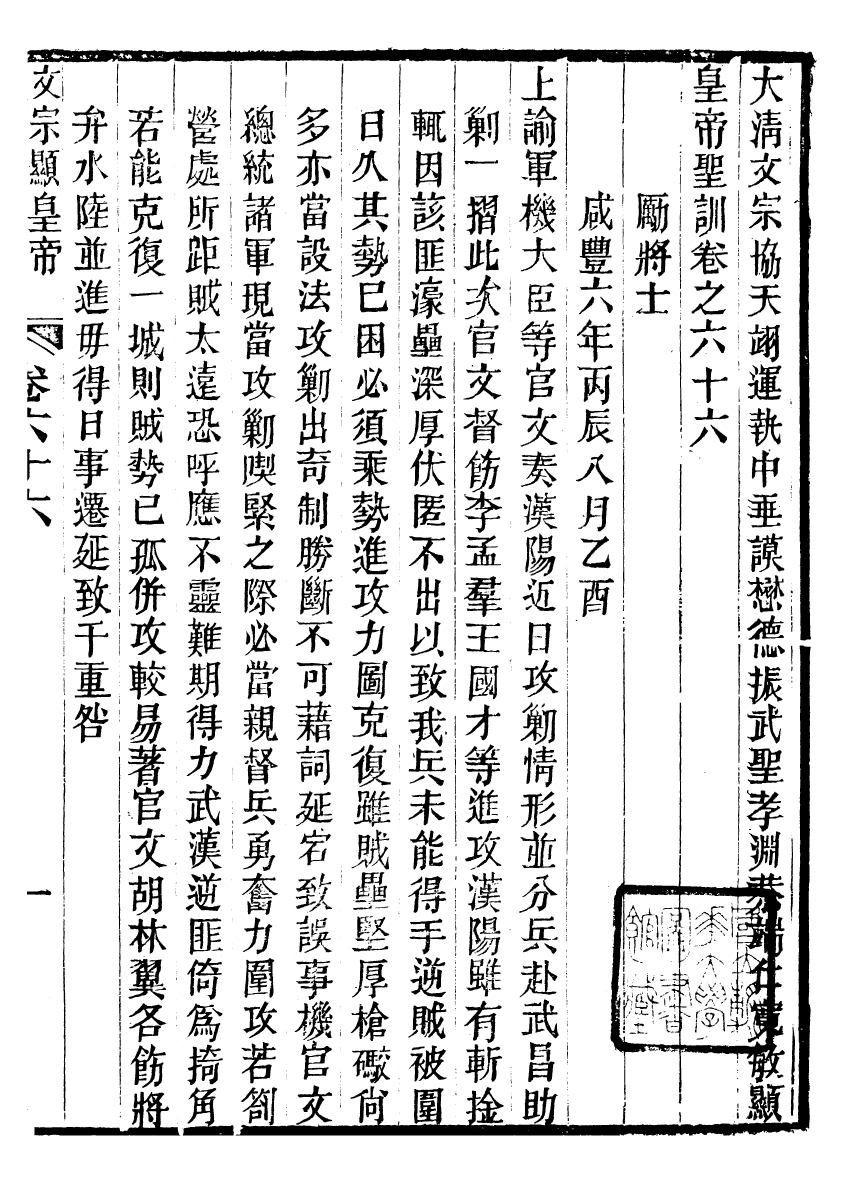 大淸文宗協天翊運執中垂謨懋德振武聖孝淵恭端仁寬敏顯
皇帝聖訓卷之六十六
勵將士
咸豐六年丙辰八月乙酉
上諭軍機大臣等官文奏漢陽近日攻勦情形並分兵赴武昌助
勦一摺此次官文督飭李孟羣王國才等進攻漢陽雖有斬捦
輒因該匪濠壘深厚伏匿不出以致我兵未能得手逆賊被圍
日久其勢已困必須乘勢進攻力圖克復雖賊壘堅厚槍礮尙
多亦當設法攻勦出奇制勝斷不可藉詞延宕致誤事機官文
總統諸軍現當攻勦喫緊之際必當親督兵勇奮力圍攻若劄
營處所距賊太遠恐呼應不靈難期得力武漢逆匪倚爲掎角
若能克復一城則賊勢已孤併攻較易著官文胡林翼各飭將
弁水陸並進毋得日事遷延致干重咎
文宗顯皇帝
卷六十六
一